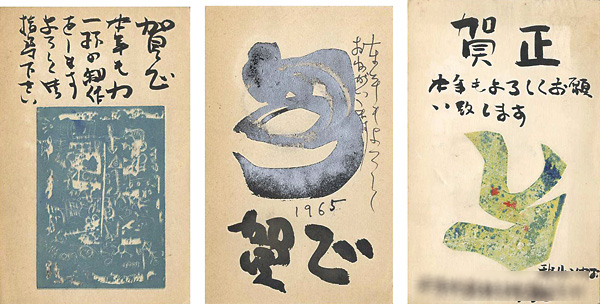 賀正
本年も力
一杯の
をします
よろしく御
指導下さい
本年もよろしく
おねがいします
1965
賀正
賀正
本年もよろしくお願
い致します